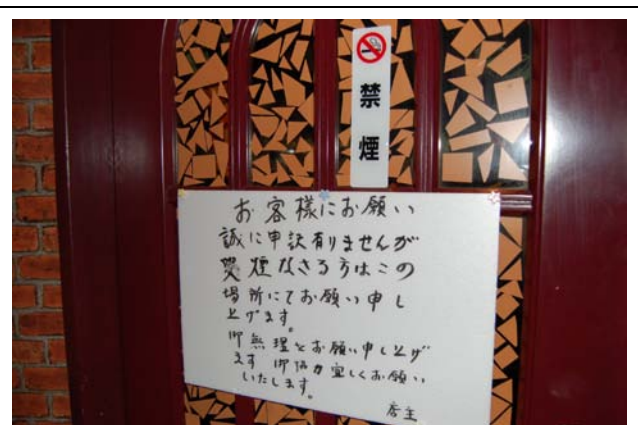 禁煙
お客様にお願い
誠に申訳有りませんが
煙なさる方はこの
場所にてお願い申し
上げます。
御無理をお願い申し上げ
ます 御協力宜しくお願い
いたします。
店主